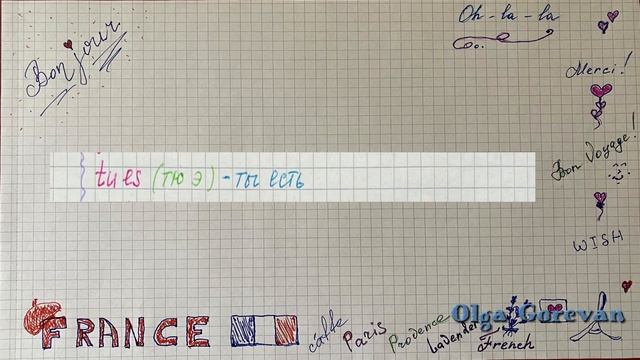 Bonjour
Oh-la-la
Merci!
tu es (тю э) - ты есть
Bon Voyage!
WISH
FRANCE
Paris
Provence
Lavender
French
Olga Gorevan